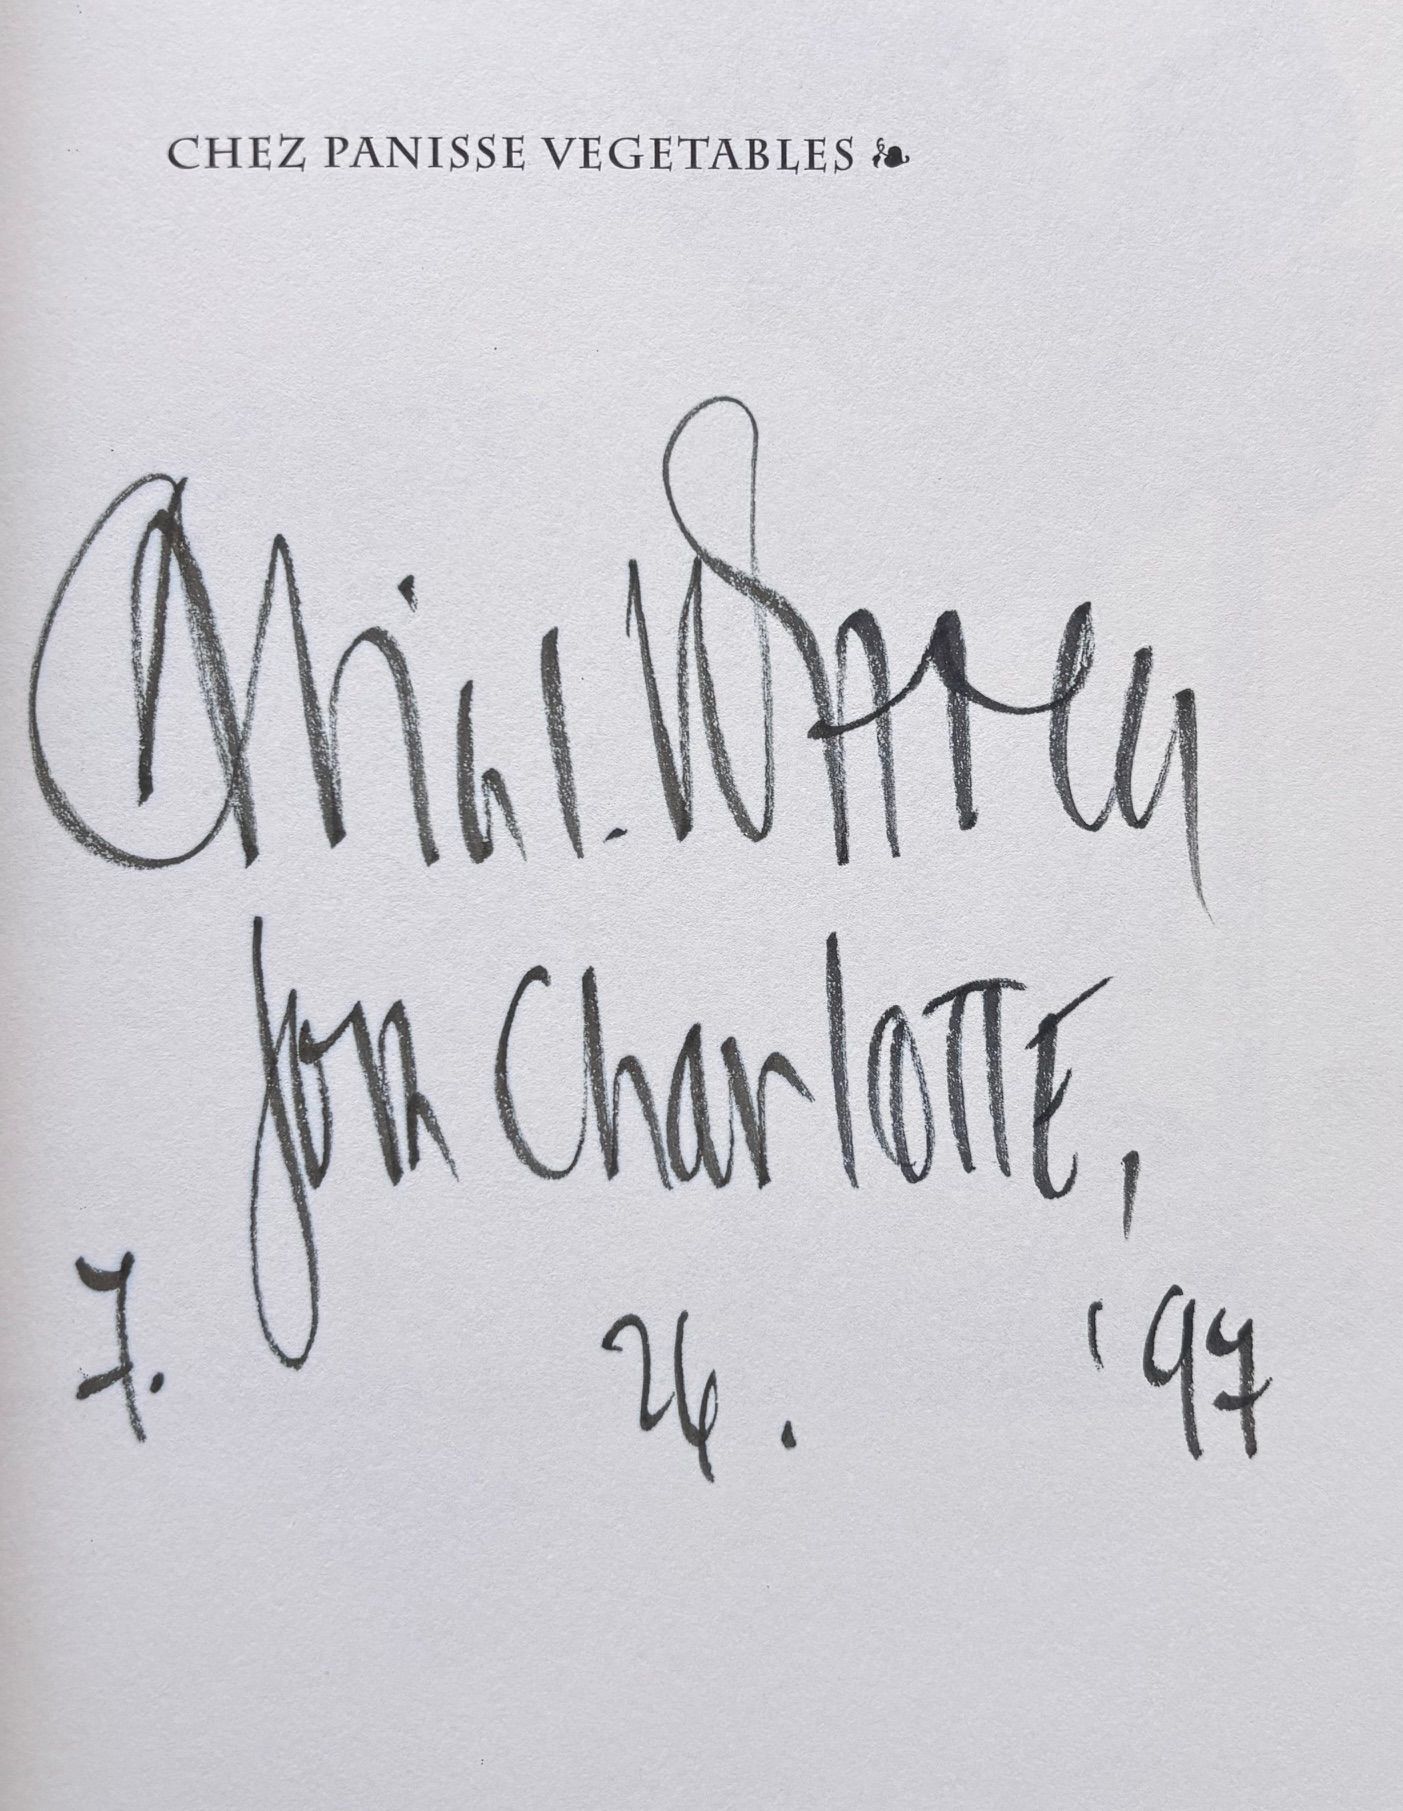 CHEZ PANISSE VEGETABLES
for Charlotte,
7. 26. '97